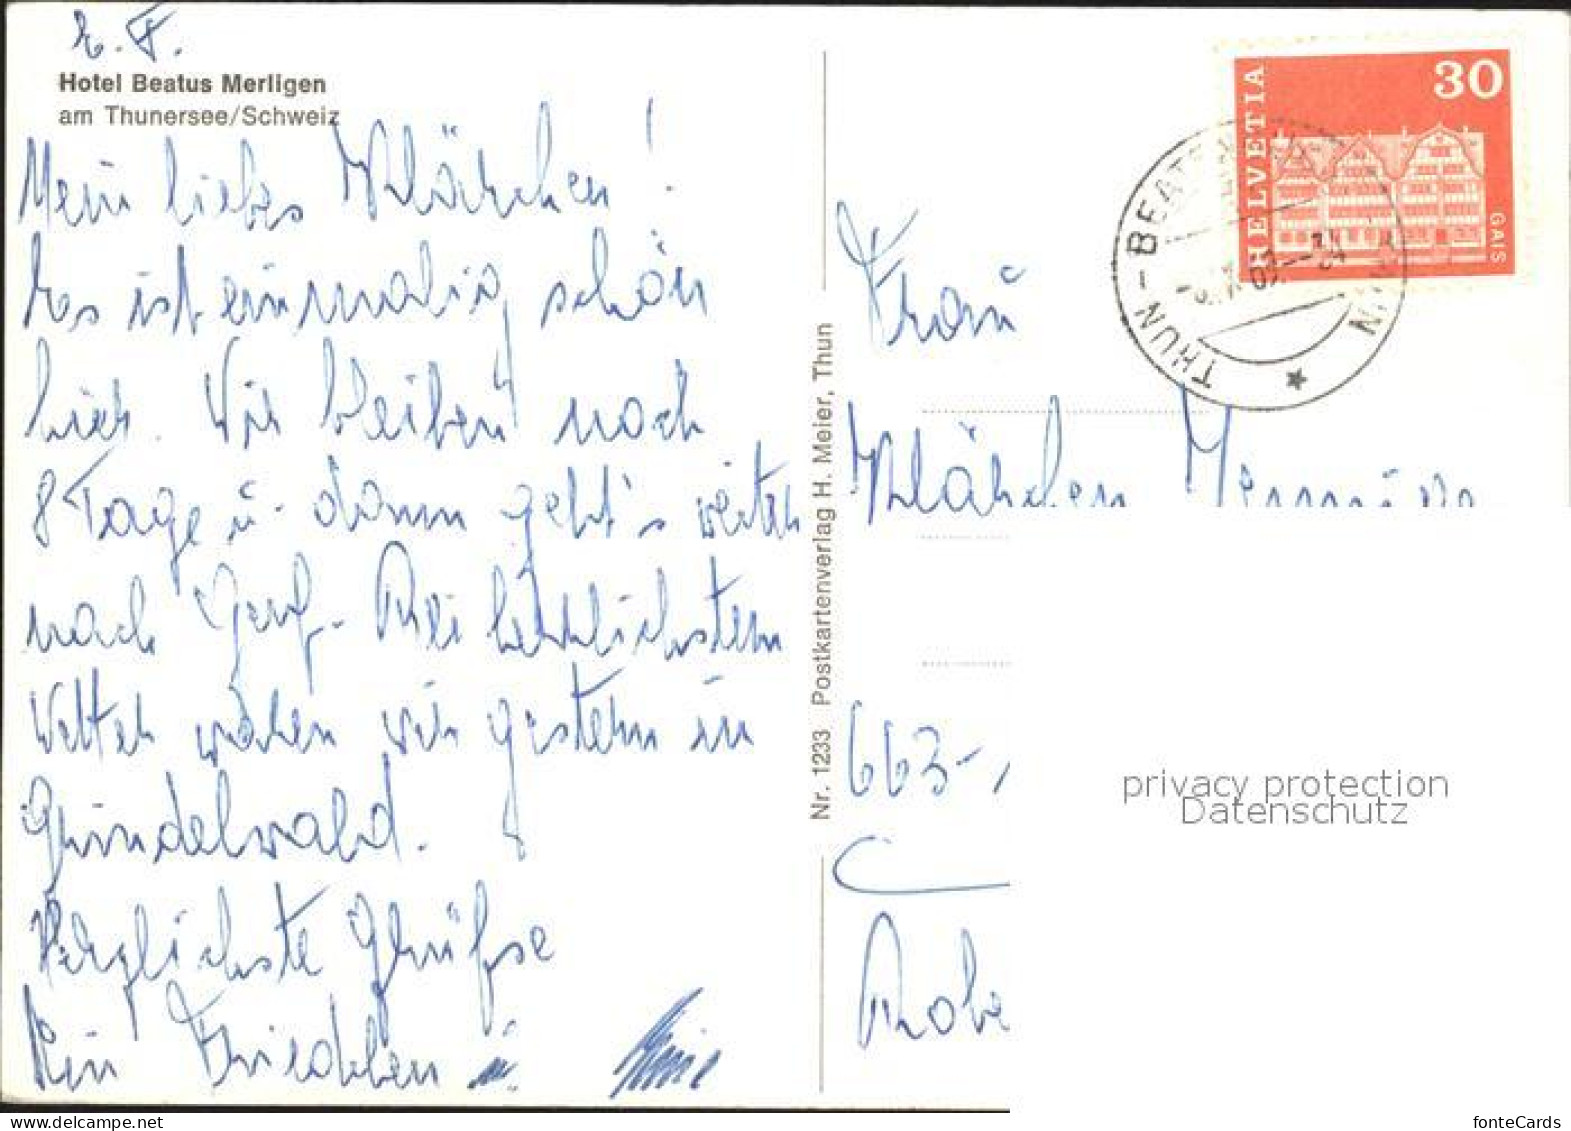 z. Z.
Hotel Beatus Merligen
am Thunersee/Schweiz
Mein liebes Klärchen!
Es ist einmalig schön
hier. Wir bleiben noch
8 Tage u. dann geht's weiter
nach Genf. Bei herrlichstem
Wetter waren wir gestern in
Grindelwald.
Herzlichste Grüße
Dein Friedchen u.
Nr. 1233 Postkartenverlag H. Meier, Thun
HELVETIA
30
GAIS
THUN - BEATENBUCHT
Frau
Klärchen
663-
privacy protection
Datenschutz
fonteCards